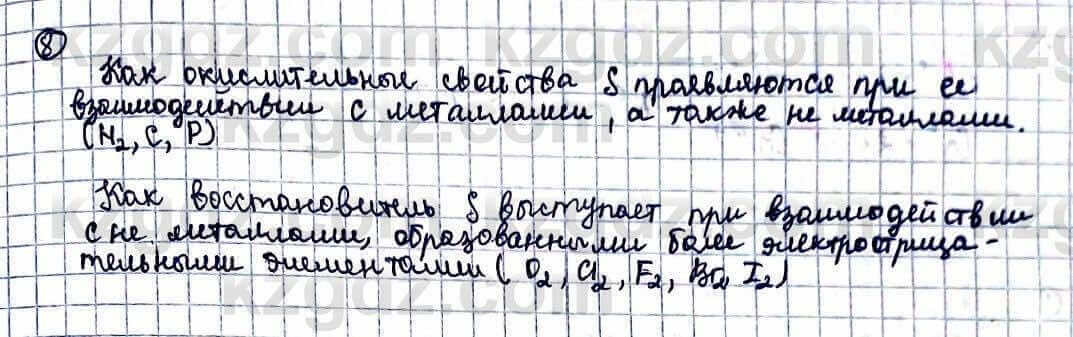 kzgdz.com kzgdz.com kz
8
Как окислительные свойства S проявляются при ее
взаимодействии с металлами, а также не металлами.
(H₂, C, P)
Как восстановитель S выступает при взаимодействии
с не металлами, образованными более электроотрица-
тельными элементами ( O₂, Cl₂, F₂, Br₂, I₂)
kzgdz.com